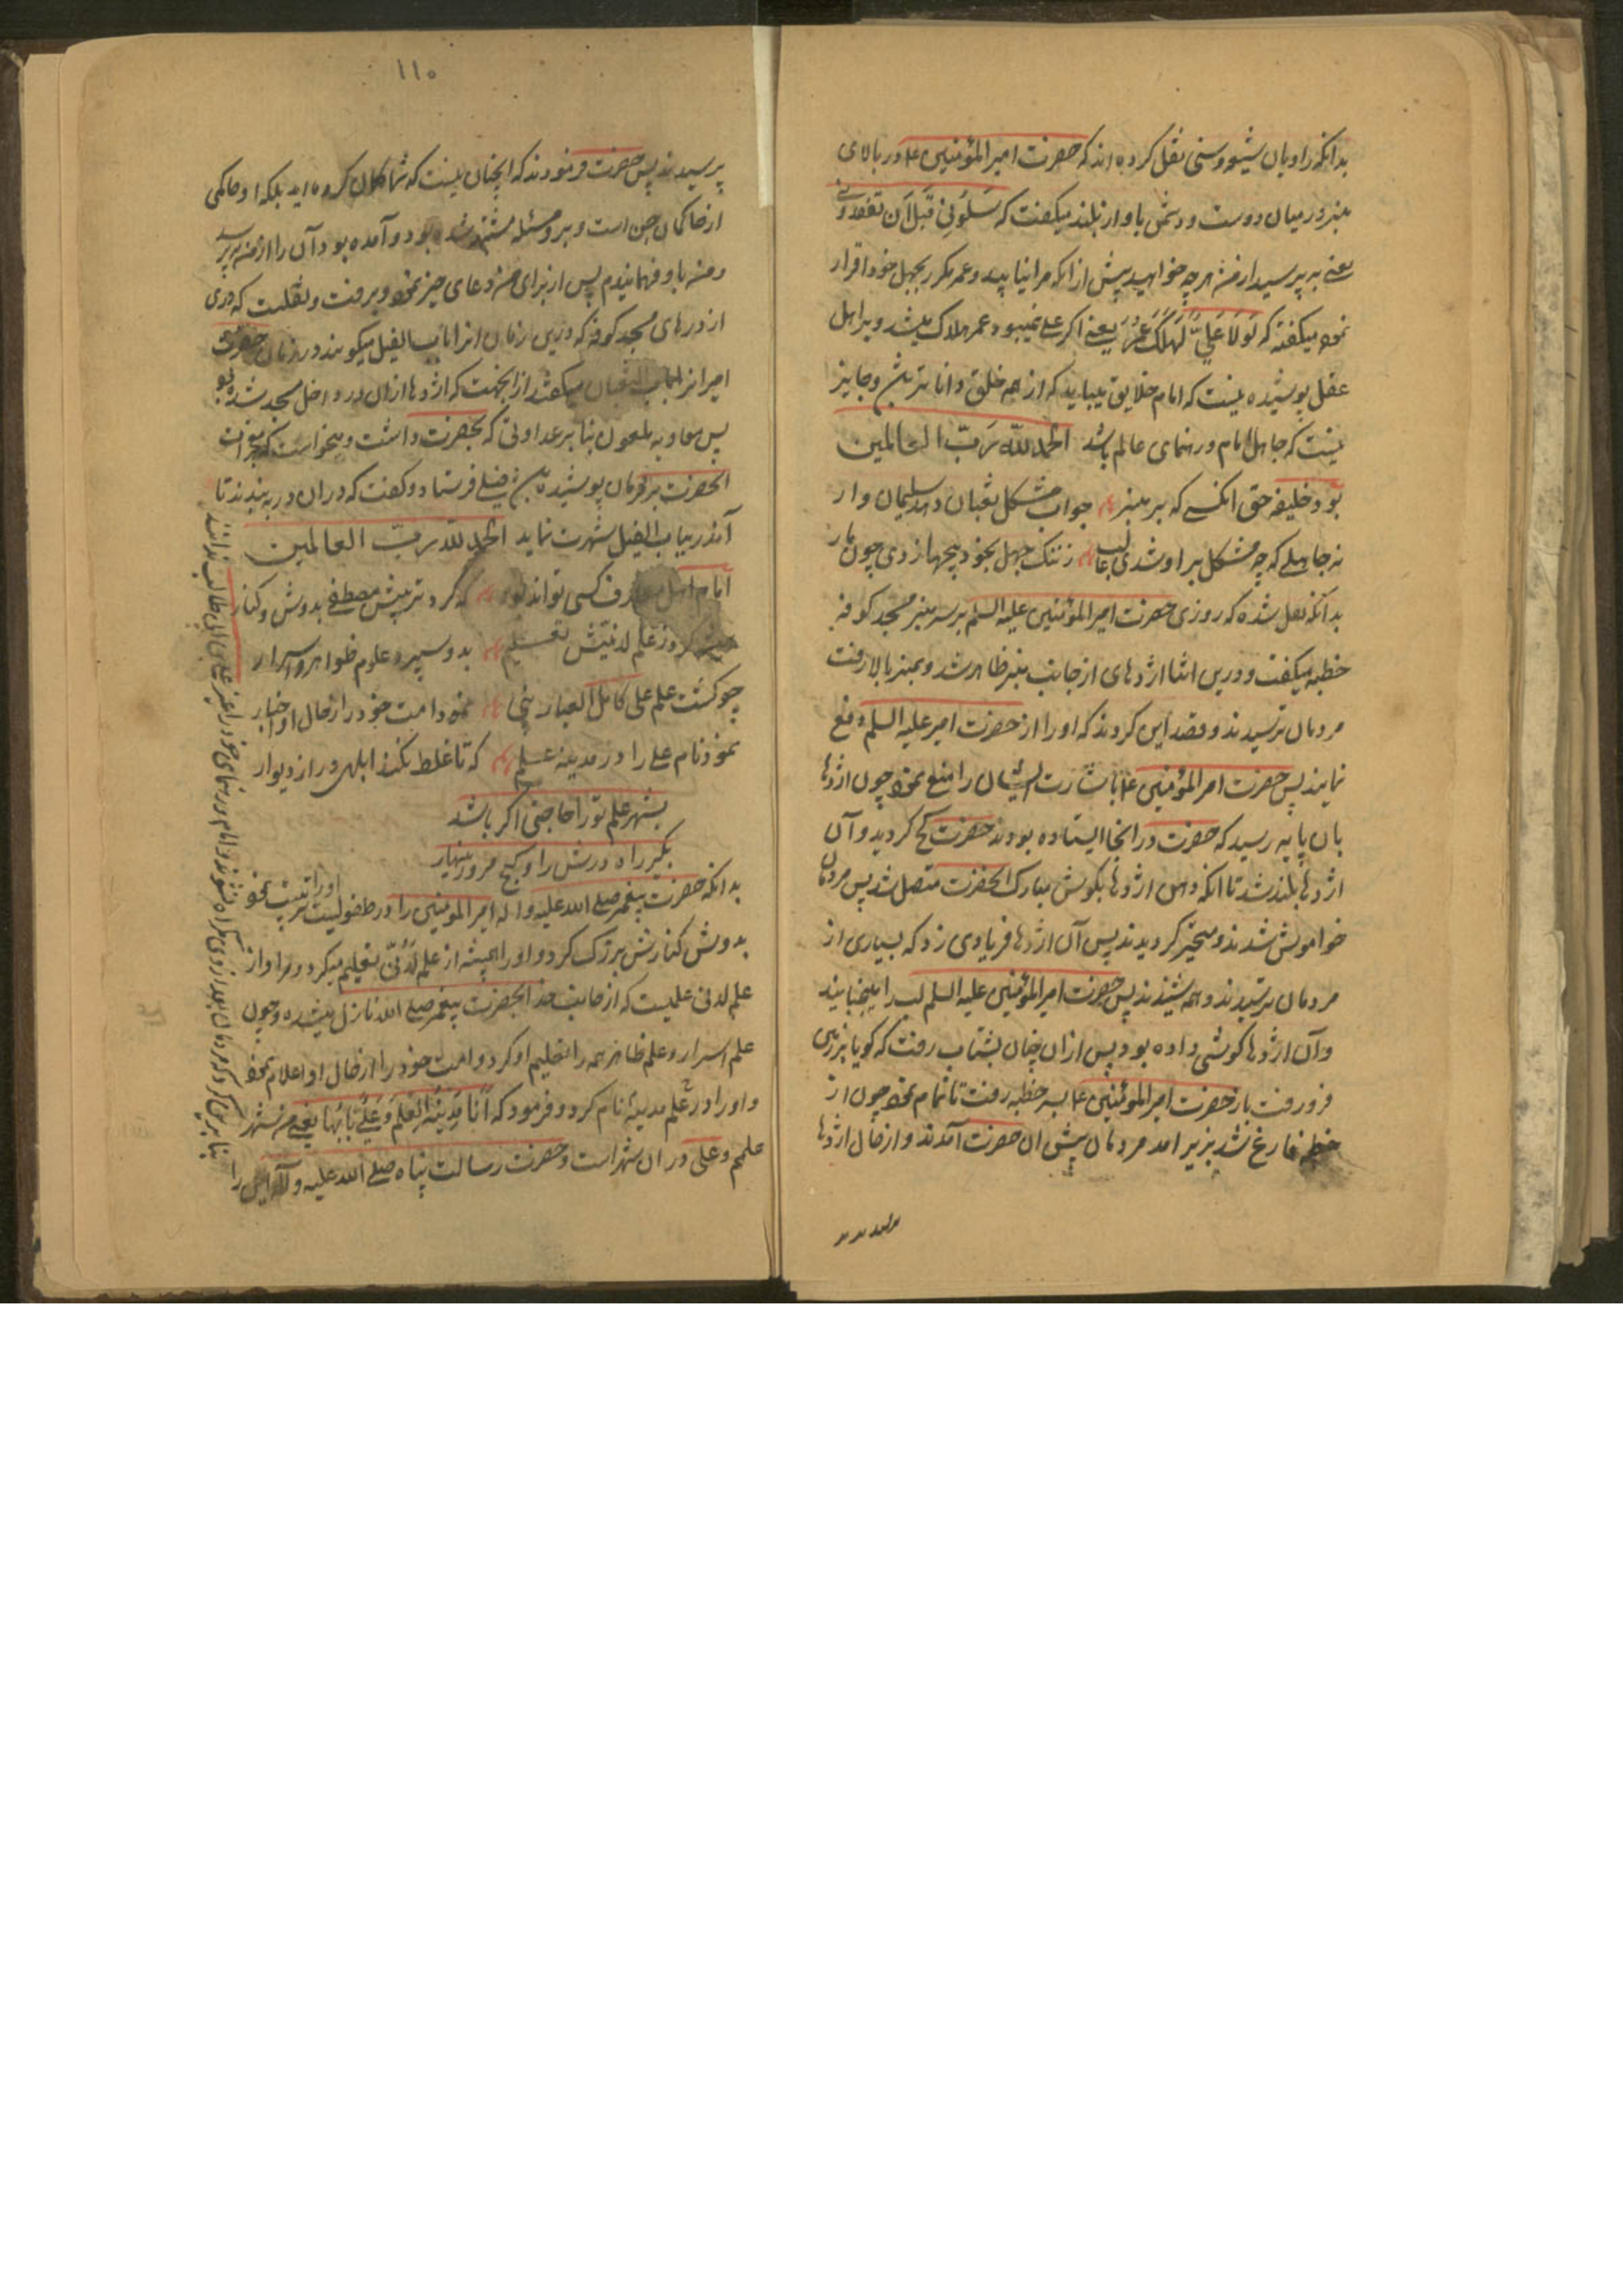 بدانکه راویان شیعه و سنی نقل کرده اند که حضرت امیر المؤمنین ع در بالای
منبر در میان دوست و دشمن باواز بلند میکفت که سَلُونِی قَبلَ اَن تفقدونی
یعنی بپرسید از من هرچه خواهید پیش از انکه مرا نیابید و عمر مکرر بجهل خود اقرار
نموده میکفته که لَولَا عَلِیٌّ لَهَلَکَ عُمَرُ یعنی اکر علی نمیبود عمر هلاک میشد و بر اهل
عقل پوشیده نیست که امام خلایق میباید که از همه خلق دانا تر باشد و جایز
نیست که جاهل امام و رهنمای عالم باشد الحمد لله رَبّ العالمین
بود خلیفه حق انکسی که بر منبر جواب مشکل ثعبان دهد سلیمان وار
نه جاهلی که چه مشکل بر او شدی ز ننک جهل بخود پیچها زدی چون مار
بدانکه نقل شده که روزی حضرت امیر المؤمنین علیه السلم بر سر منبر مسجد کوفه
خطبه میکفت و درین اثنا اژدهای از جانب منبر ظاهر شد و بمنبر بالا رفت
مردمان ترسیدند و قصد این کردند که او را از حضرت امیر علیه السلم دفع
نمایند پس حضرت امیر المؤمنین ع باشارت ایشان را منع نموده چون اژدها
بان پایه رسید که حضرت در انجا ایستاده بودند حضرت کج کردید و آن
اژدها بلند شد تا انکه دهن اژدها بکوش مبارک انحضرت متصل شد پس مردمان
خواموش شدند و متحیر کردیدند پس آن اژدها فریادی زد که بسیاری از
مردمان ترسیدند و همه شنیدند پس حضرت امیر المؤمنین علیه السلم لب را میجنبانید
و آن اژدها کوشی داده بود پس ازان چنان بشتاب رفت که کویا بزمین
فرو رفت باز حضرت امیر المؤمنین ع بسر خطبه رفت تا تمام نموده چون از
خطبه فارغ شد بزیر امد مردمان پیش ان حضرت آمدند و از حال اژدها
۱۱۰
پرسیدند پس حضرت فرمودند که اینچنان نیست که شما کمان کرده اید بلکه او حاکمی
از حاکمان جن است و برو مسئله مشتبه شده بود و آمده بود آن را از من بپرسد
و من باو فهمانیدم پس از برای من دعای خیر نموده و برفت و نقلست که دری
از درهای مسجد کوفه که درین زمان انرا باب الفیل میکویند در زمان حضرت
امیر انرا باب الثعبان میکفتند از انجهت که اژدها ازان در داخل مسجد شده بود
پس معاویه ملعون بنا بر عداوتی که بحضرت داشت و میخواست که معجزات
انحضرت بر مردمان پوشیده باشد فیلی فرستاد و کفت که دران در ببندند تا
آندر بباب الفیل شهرت نماید الحمد لله ربّ العالمین
امام اهل معارف کسی تواند بود که کرد تربیتش مصطفی بدوش و کنار
کرد ز علم لدنیتش تعلیم بدو سپرد علوم ظواهر و اسرار
چو کشت علم علی کامل العیار نبی نمود امت خود را از حال او اخبار
نمود نام علی را در مدینه علم که تا غلط نکند ابلهی در از دیوار
بشهر علم تو را حاجتی اکر باشد
بکیر راه درش را و کج مرو زینهار
بدانکه حضرت پیغمبر صلی الله علیه و اله امیر المؤمنین را در طفولیت تربیت نمود
او را
بدوش کنارش بزرک کرد و او را همیشه از علم لَدُنّی تعلیم میکرد و مراد از
علم لدنی علمیست که از جانب خدا بحضرت پیغمبر صلی الله نازل میشده و چون
علم اسرار و علم ظاهر همه را تعلیم او کرد و امت خود را از حال او اعلام نموده
و او را در علم مدینه نام کرد و فرمود که اَنَا مَدِینَةُ العِلمِ وَ عَلِیٌّ بَابُهَا یعنی من شهر
علمم و علی در ان شهر است و حضرت رسالت پناه صلی الله علیه و اله این را